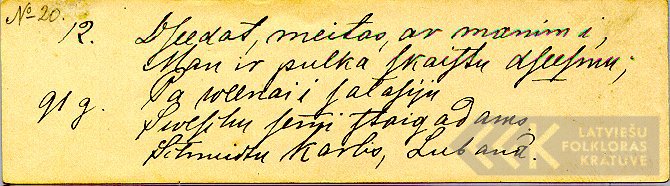 № 20.
12. Dseedat, meitas, ar manim i,
Man ir pulka skaistu dseesmu;
91 g. Pa weenai i salasiju
Sweschu semi staigadams.
Schmidtu Karlis, Lubanā.
LATVIEŠU
FOLKLORAS
KRĀTUVE